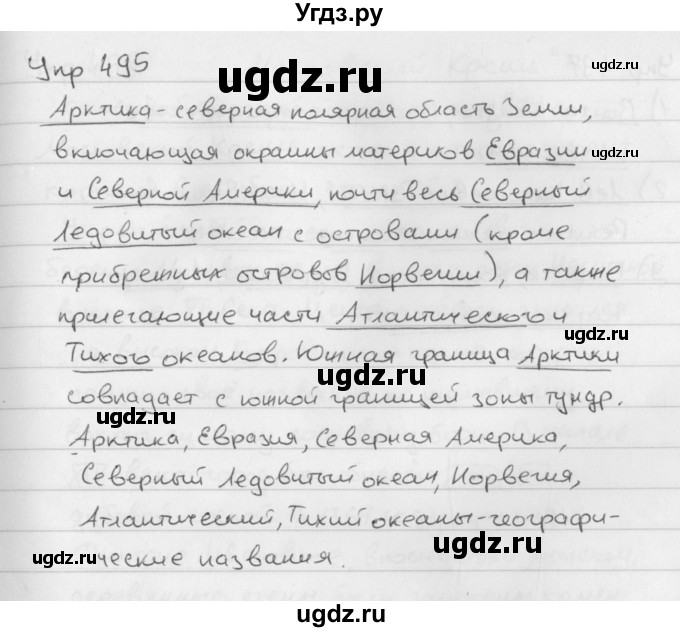 Угдз.ру
Упр 495
Арктика - северная полярная область Земли,
включающая окраины материков Евразии
и Северной Америки, почти весь Северный
Ледовитый океан с островами (кроме
прибрежных островов Норвегии), а также
прилегающие части Атлантического и
Тихого океанов. Южная граница Арктики
совпадает с южной границей зоны тундр.
Арктика, Евразия, Северная Америка,
Северный Ледовитый океан, Норвегия,
Атлантический, Тихий океаны - географи-
ческие названия.
ugdz.ru
ugdz.ru
ugdz.ru
ugdz.ru
ugdz.ru
ugdz.ru
ugdz.ru
ugdz.ru
ugdz.ru
ugdz.ru
ugdz.ru
ugdz.ru
ugdz.ru